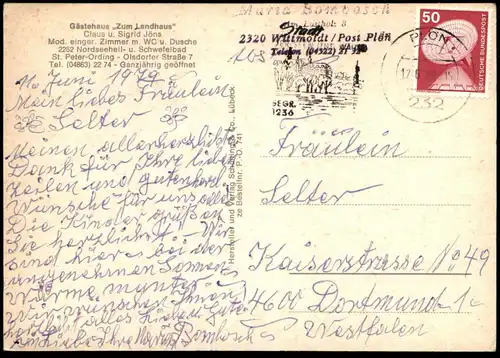 Gästehaus „Zum Landhaus"
Claus u. Sigrid Jöns
Mod. einger. Zimmer m. WC u. Dusche
2252 Nordseeheil- u. Schwefelbad
St. Peter-Ording - Olsdorfer Straße 7
Tel. (04863) 22 74 - Ganzjährig geöffnet
10. Juni 1979
Mein liebes Fräulein
Selter
Meinen allerherzlichsten
Dank für Ihre lieben
Zeilen und guten
Wünsche für uns alle.
Die Kinder grüßen
Sie herzlichst! - Wir
sind hier bei der
angenehmen Sommer-
Wärme
Wir wünschen Ihnen
alles Liebe u. Gute
Ihre Maria Bombosch
Hersteller und Verlag Schöning & Co., Lübeck
Bestellnr. P.-O. 741
Maria Bombosch
2320 Wittmoldt / Post Plön
Telefon (04522)
Abs
Stadt
PLÖN
GEGR.
1236
PLÖN
232
50
DEUTSCHE BUNDESPOST
Fräulein
Selter
Kaiserstrasse No 49
4600 Dortmund 1
Westfalen